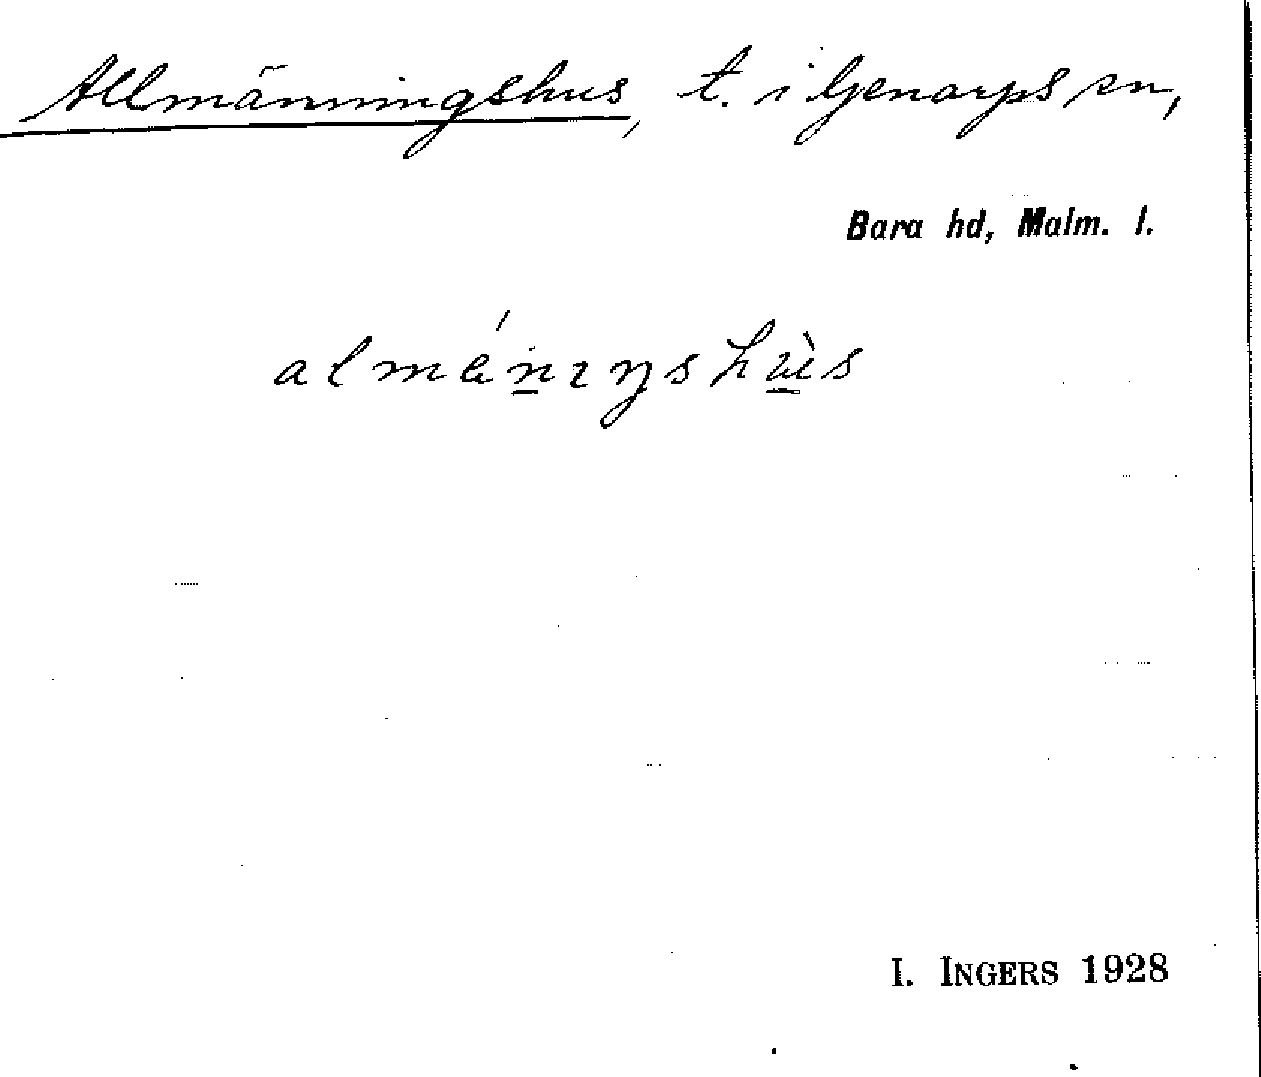 Allmänningshus, t. i Genarps sn,
Bara hd, Malm. l.
almän̲ıŋshu̲s
I. INGERS 1928